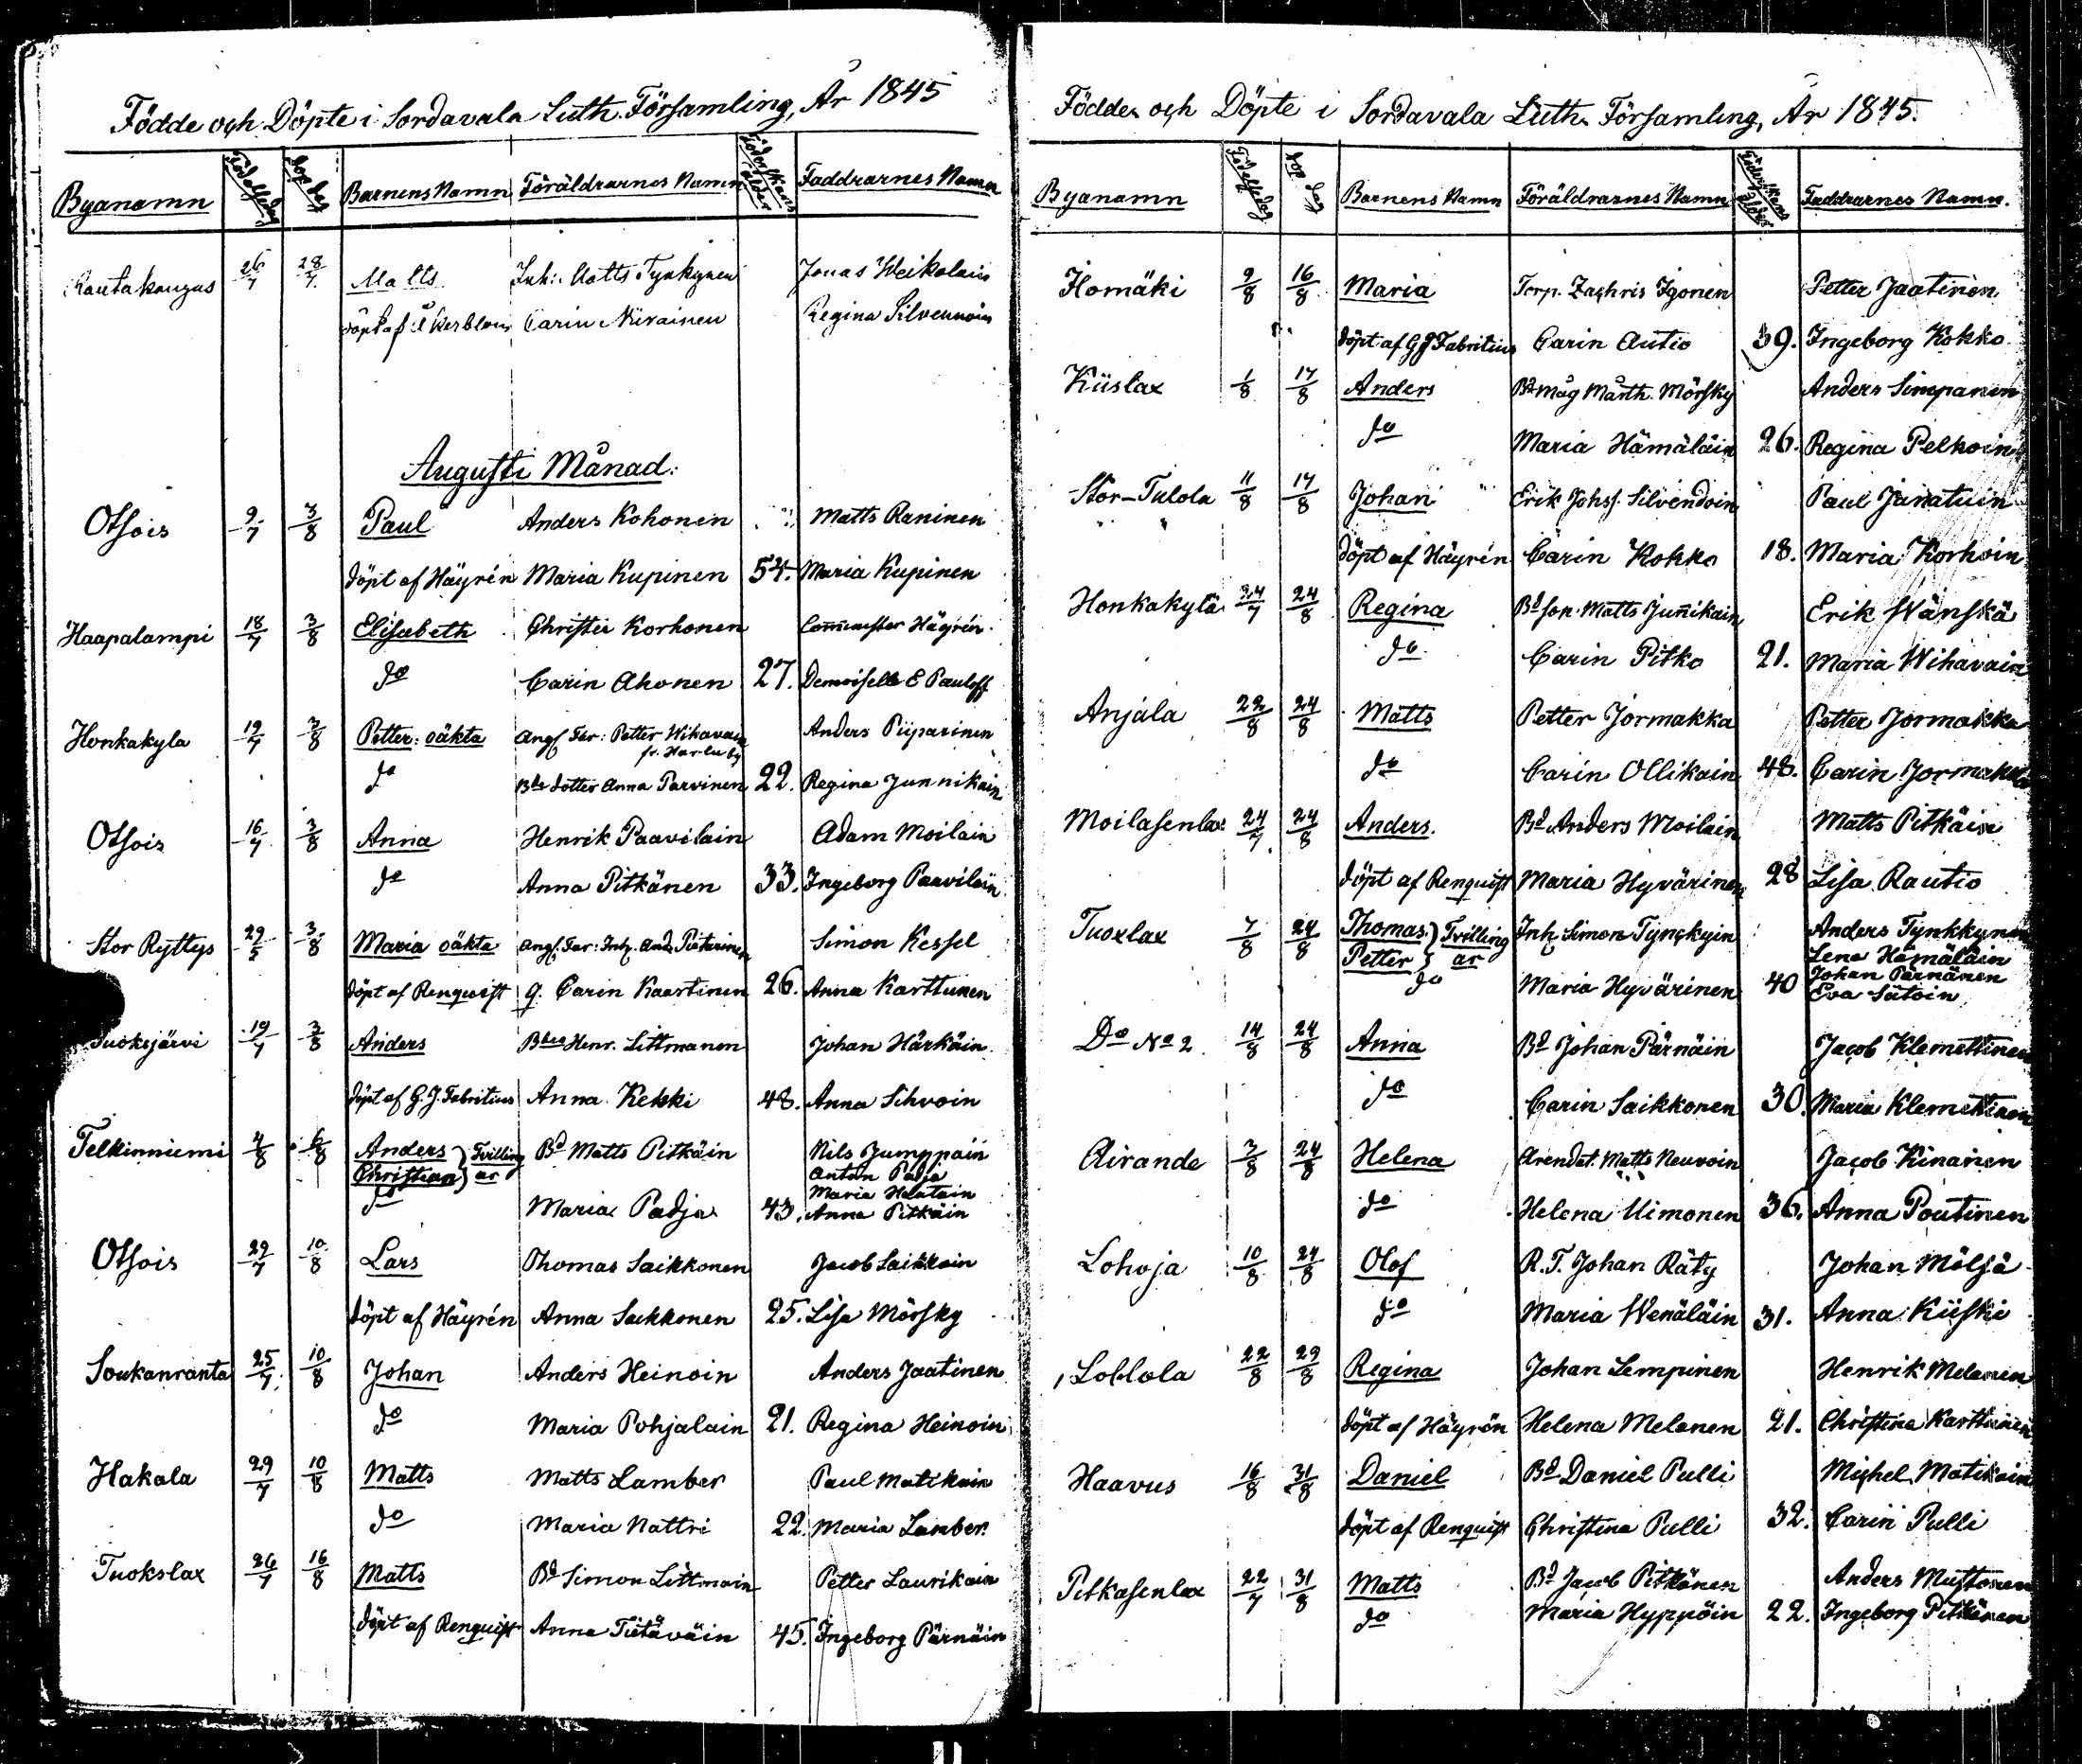 Födde och Döpte i Sordavala Luth. Församling, År 1845
Byanamn Födelsedag Dop dag Barnens Namn Föräldrarnes Namn Föderskans ålder Faddrarnes Namn
Rautakangas 26/7 28/7 Matts Inh: Matts Tynkynen Jonas Weikolain
döpt af Carin Niirainen Regina Silvennoin
Augusti Månad:
Otsois 9/7 3/8 Paul Anders Kohonen Matts Raninen
döpt af Häyrén Maria Kupinen 54. Maria Kupinen
Haapalampi 18/7 3/8 Elisabeth Christer Korhonen Häyrén
do Carin Ahonen 27. Demoiselle E Pauloff
Honkakyla 19/7 3/8 Petter: oäkta Angf Far: Petter Wihavain
fr. Harluby Anders Piiparinen
do Bde dotter Anna Parvinen 22. Regina Junnikain
Otsois 16/7 3/8 Anna Henrik Paavilain Adam Moilain
do Anna Pitkänen 33. Ingeborg Paavilain
Stor Ryttys 29/5 3/8 Maria oäkta Angf. Far: Inh. And. Simon Kessel
döpt af Renqwist q. Carin Kaartinen 26. Anna Karttunen
Tuoksjärvi 19/7 3/8 Anders Bden Henr. Littmanen Johan Härkäin
döpt af G. J. Fabritius Anna Kekki 48. Anna Sihvoin
Telkinniemi 4/8 6/8 Anders } Tvilling Bd Matts Pitkäin Nils Jumppain
Christian } ar Anton Padja
do Maria Padja 43. Maria
Anna Pitkäin
Otsois 29/7 10/8 Lars Thomas Saikkonen Jacob Saikkoin
döpt af Häyrén Anna Saikkonen 25. Lisa Mörsky
Soukanranta 25/7 10/8 Johan Anders Heinoin Anders Jaatinen
do Maria Pohjalain 21. Regina Heinoin
Hakala 29/7 10/8 Matts Matts Lamber Paul Matikain
do Maria Nattri 22. Maria Lamber
Tuokslax 26/7 16/8 Matts Bd Simon Littmain Petter Laurikain
döpt af Renquist Anna Tiitäväin 45. Ingeborg Pärnäin
Födde och Döpte i Sordavala Luth. Församling, År 1845.
Byanamn Födelsedag Dop dag Barnens Namn Föräldrarnes Namn Föderskans ålder Faddrarnes Namn.
Homäki 9/8 16/8 Maria Torp. Zachris Igonen Petter Jaatinen
döpt af G J Fabritius Carin Autio 39. Ingeborg Kokko
Kiislax 1/8 17/8 Anders Bd måg Mårth. Mörsky Anders Simpanen
do Maria Hämäläin 26. Regina Pelkoin
Stor-Tulola 11/8 17/8 Johan Erik Johsf. Silvendoin Paul Janatuin
döpt af Häyrén Carin Kokko 18. Maria Korhoin
Honkakylä 24/7 24/8 Regina Bd son Matts Junikain Erik Wänskä
do Carin Pitko 21. Maria Wihavain
Anjala 22/8 24/8 Matts Petter Jormakka Petter Jormakka
do Carin Ollikain 48. Carin Jormakka
Moilasenlax 24/7 24/8 Anders Bd Anders Moilain Matts Pitkäin
döpt af Renquist Maria Hyvärinen 28 Lisa Rautio
Tuoxlax 7/8 24/8 Thomas } Tvilling Inh Simon Tynckyin Anders Tynkkynen
Petter } ar Lena Hämäläin
do Maria Hyvärinen 40 Johan Pärnänen
Eva Sätoin
Do No 2. 14/8 24/8 Anna Bd Johan Pärnäin Jacob Klemettinen
do Carin Saikkonen 30. Maria Klemettinen
Airande 3/8 24/8 Helena Arendat. Matts Neuvoin Jacob Kinanen
do Helena Uimonen 36. Anna Poutinen
Lohoja 10/8 24/8 Olof R. T. Johan Räty Johan Mölsä
do Maria Wenäläin 31. Anna Kiiski
Loblola 22/8 29/8 Regina Johan Lempinen Henrik Melanen
döpt af Häyrén Helena Melanen 21. Christina Karttunen
Haavus 16/8 31/8 Daniel Bd Daniel Pulli Michel Matikain
döpt af Renquist Christina Pulli 32. Carin Pulli
Pitkasenlax 22/7 31/8 Matts Bd Jacob Pitkänen Anders Muttonen
do Maria Hyppöin 22. Ingeborg Pitkänen